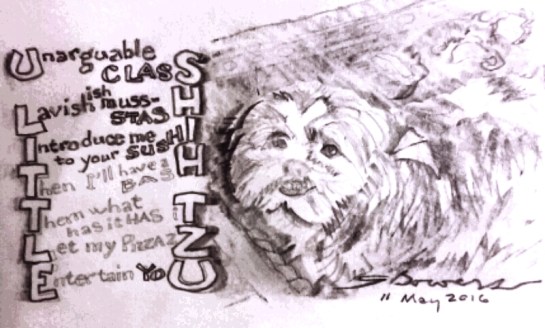 Unarguable
CLASS
Lavish
ish
muss-
STASH
Introduce me
to your SUSHI
Then I'll have a
BASH
Them what
has it HAS iT
Let my PizzAZZ
Entertain YoU
SBowers
11 May 2016